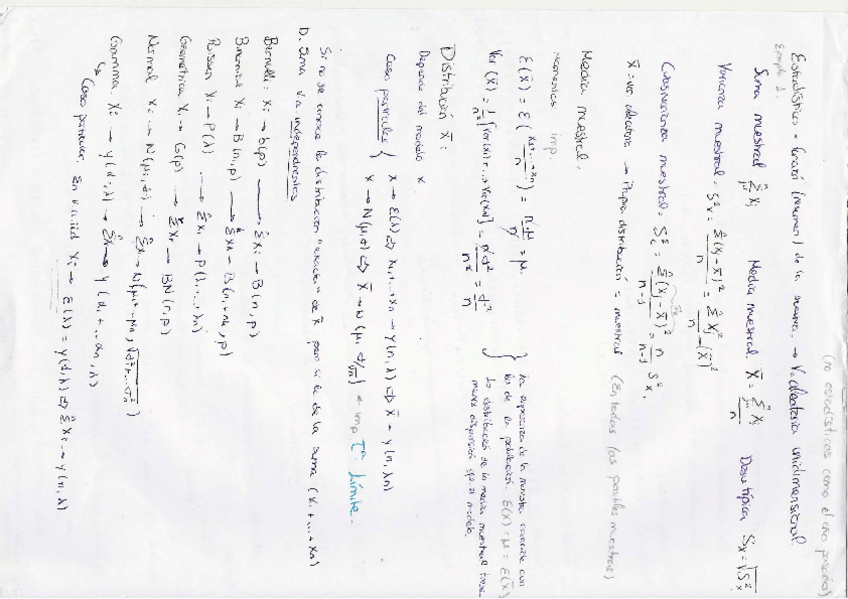 (no estadísticas como el año pasado)
Estadístico = función (resumen) de la muestra. → V. aleatoria unidimensional.
Ejemplo 1.
Suma muestral Σ Xj Media muestral. X̄ = Σ Xj / n Desv. típica Sx = √S²x
Varianza muestral. S²x = Σ(Xj - X̄)² / n = Σ Xj² / n - (X̄)²
Cuasivarianza muestral. S²c = Σ(Xj - X̄)² / n-1 = n / n-1 S²x.
X̄ = va aleatoria → Propia distribución = muestral (En todas las posibles muestras)
Media muestral.
Momentos imp.
E(X̄) = E(X1+...+Xn / n) = n·μ / n = μ.
Var(X̄) = 1/n² [Var(X1)+...+Var(Xn)] = n·σ² / n² = σ² / n
} La esperanza de la muestra coincide con
los de la población. E(X) = μ = E(X̄)
La distribución de la media muestral tiene
menos dispersión que el modelo.
Distribución X̄:
Depende del modelo X.
Caso particular { X → E(λ) ⇔ X1+...+Xn → γ(n,λ) ⇔ X̄ → γ(n,λn)
X → N(μ,σ) ⇔ X̄ → N(μ, σ/√n) = imp. Tª Límite.
Si no se conoce la distribución "exacta" de X̄ pero si la de la suma (X1+...+Xn)
D. Suma v.a independientes
Bernoulli: Xi → b(p) → Σ Xi → B(n,p)
Binomial Xi → B(n,p) → Σ Xi → B(n1+nk,p)
Poisson Xi → P(λ) → Σ Xi → P(λ1+...+λn)
Geométrica Xi → G(p) → Σ Xi → BN(n,p)
Normal Xi → N(μi,σi) → Σ Xi → N(μ1+...μn, √σ1²+...σn²)
Gamma Xi → γ(αi,λ) → Σ Xi → γ(α1+...αn,λ)
↳ Caso particular. En v.a iid Xi → E(λ) = γ(1,λ) ⇔ Σ Xi → γ(n,λ)